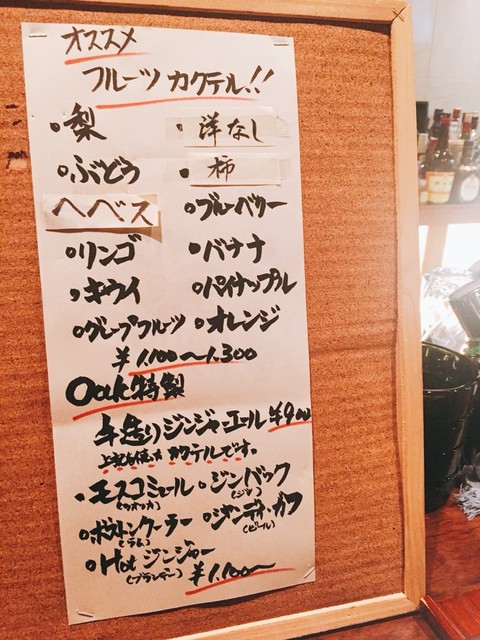 オススメ
フルーツカクテル!!
・梨 ・洋なし
・ぶどう ・柿
ヘベス ・ブルーベリー
・リンゴ ・バナナ
・キウイ ・パイナップル
・グレープフルーツ ・オレンジ
¥1,100〜1,300
Oak特製
手造りジンジャーエール ¥900
上記を使ったカクテルです。
・モスコミュール ・ジンバック
(ウオッカ) (ジン)
・ボストンクーラー ・ジンデ・ガフ
(ラム) (ビール)
・Hotジンジャー
(ブランデー) ¥1,100〜